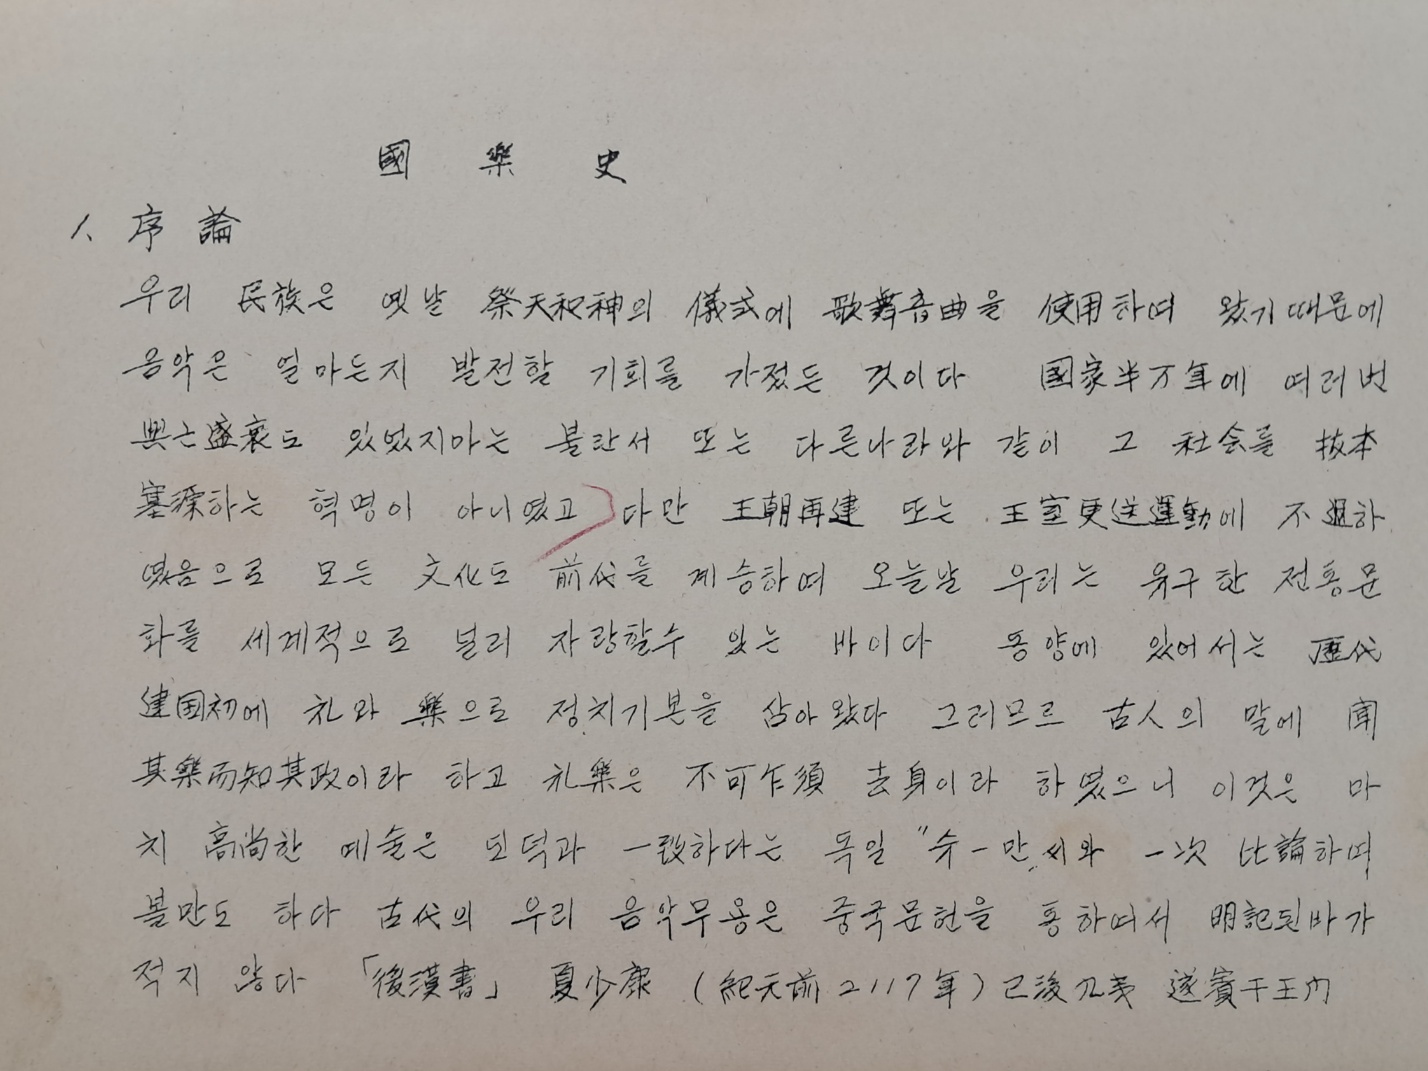 國樂史
1、序論
우리 民族은 옛날 祭天和神의 儀式에 歌舞音曲을 使用하며 왔기때문에
음악은 얼마든지 발전할 기회를 가졌든 것이다 國家半万年에 여러번
興亡盛衰도 있었지마는 불란서 또는 다른나라와 같이 그 社会를 拔本
塞源하는 혁명이 아니였고 다만 王朝再建 또는 王室更迭運動에 不過하
였음으로 모든 文化도 前代를 계승하며 오늘날 우리는 유구한 전통문
화를 세계적으로 널리 자랑할수 있는 바이다 동양에 있어서는 歷代
建国初에 礼와 樂으로 정치기본을 삼아왔다 그러므로 古人의 말에 聞
其樂而知其政이라 하고 礼樂은 不可乍須 去身이라 하였으니 이것은 마
치 高尚한 예술은 도덕과 一致하다는 독일 "슈-만씨와 一次 比論하며
볼만도 하다 古代의 우리 음악무용은 중국문헌을 통하여서 明記된바가
적지 않다 「後漢書」 夏少康 (紀元前2117年) 已後九夷 遂賓于王门